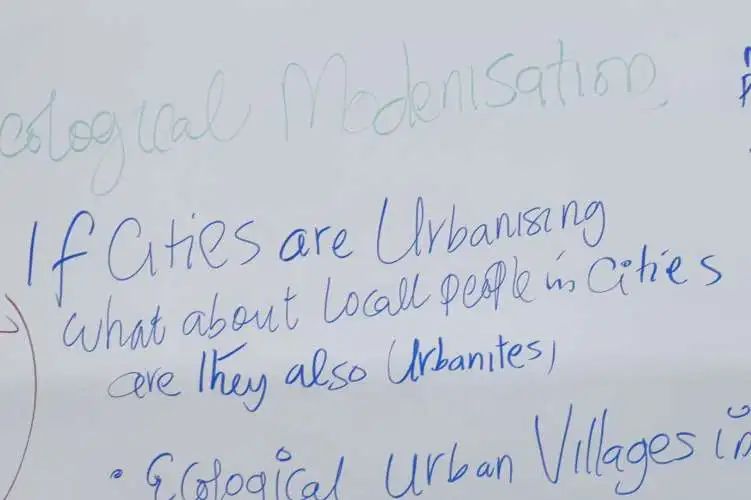 cological Modenisation
If Cities are Urbanising
what about Locall people in Cities
are They also Urbanites,
• Ecological Urban Villages in